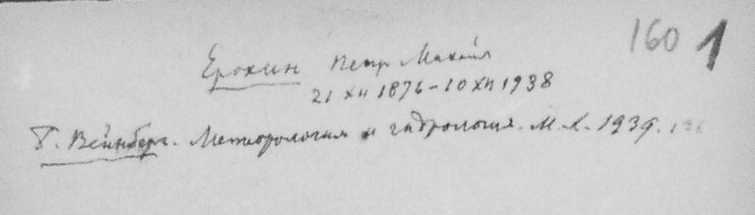 160 1
Ерохин Петр Михайл
21 XII 1876 – 10 XII 1938
Б. Вейнберг. Метеорология и гидрология. М. Л. 1939.